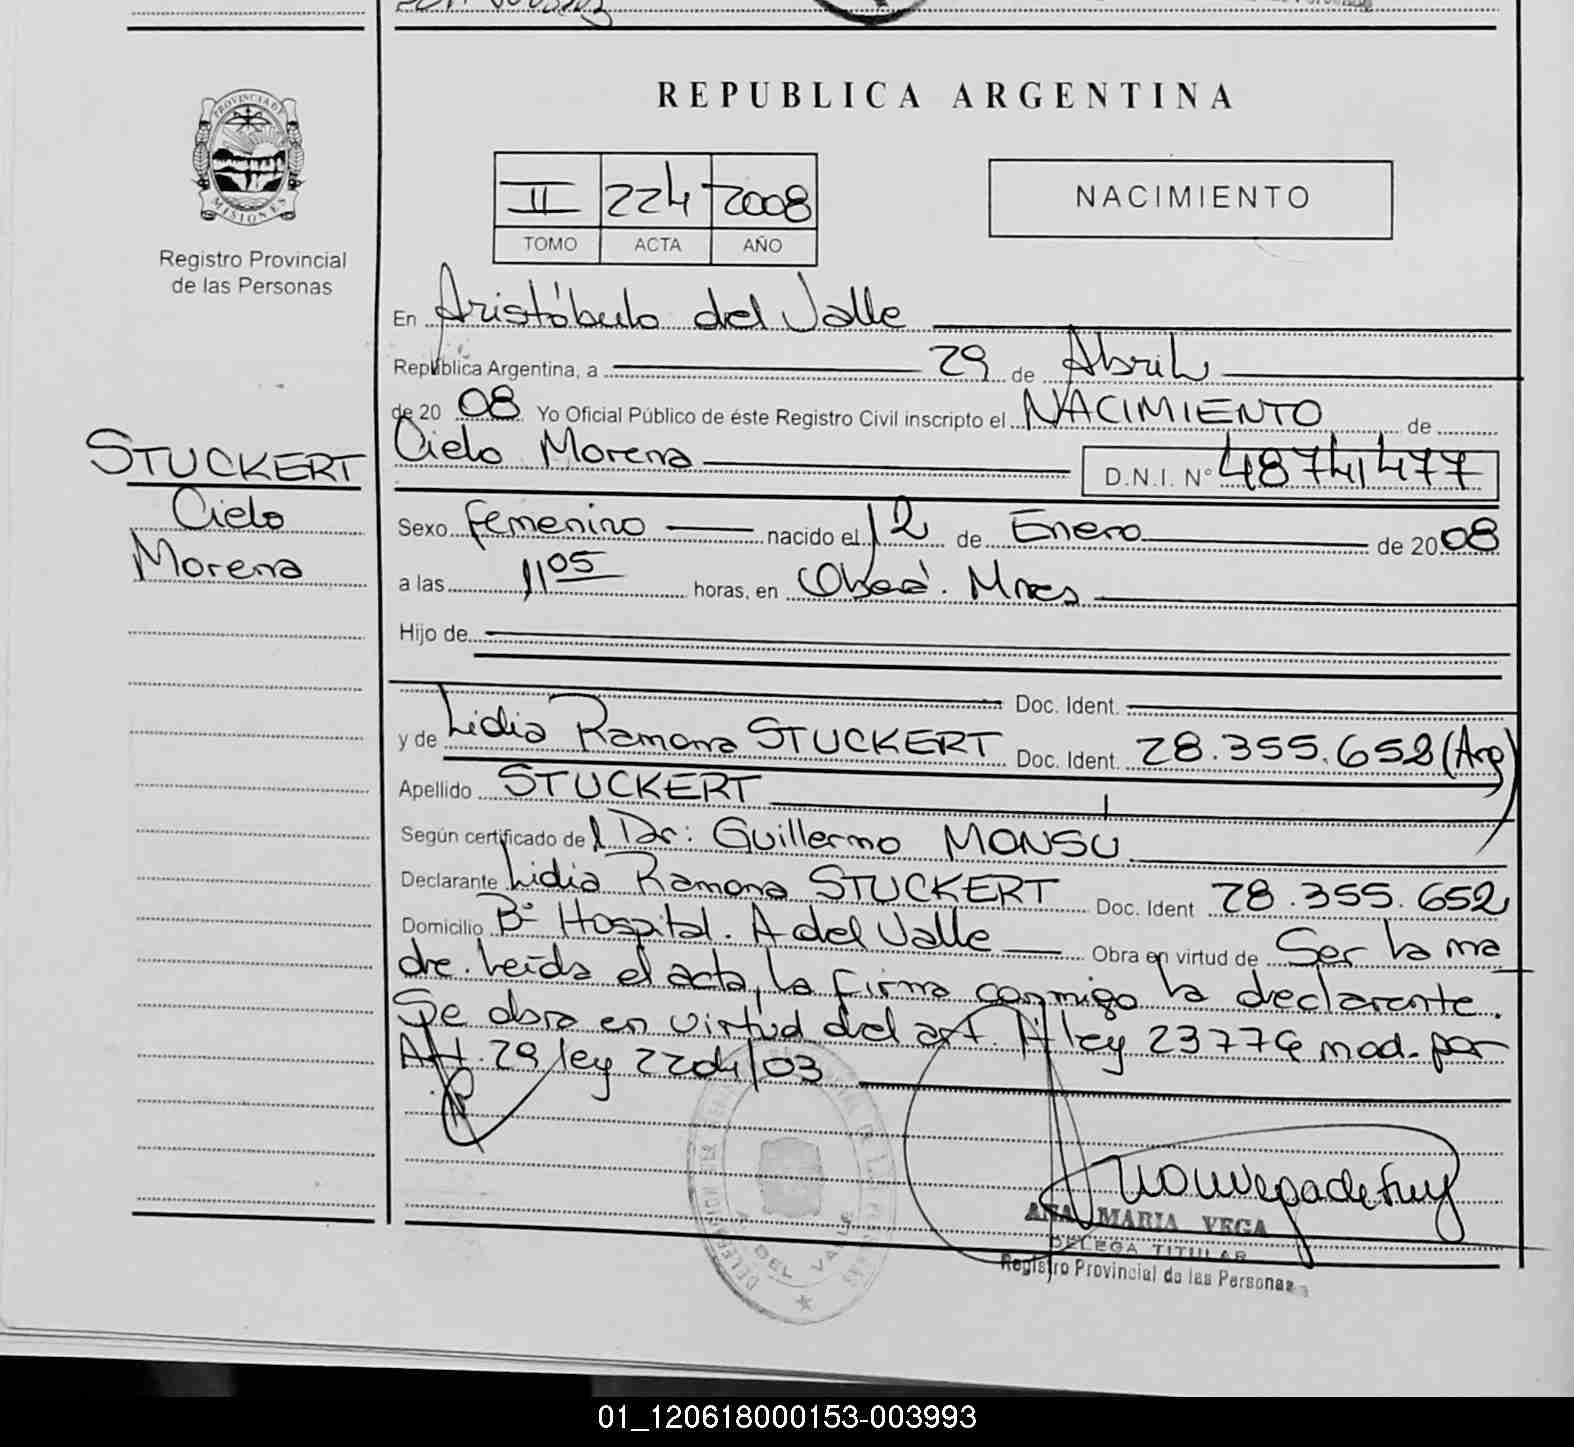 REPUBLICA ARGENTINA
PROVINCIA DE
MISIONES
Registro Provincial
de las Personas
II 224 2008
TOMO ACTA AÑO
NACIMIENTO
En Aristóbulo del Valle
República Argentina, a 29 de Abril
de 20 08 Yo Oficial Público de éste Registro Civil inscripto el NACIMIENTO de
Cielo Morena D.N.I. Nº 48741477
STUCKERT
Cielo
Morena
Sexo femenino nacido el 12 de Enero de 20 08
a las 11 05 horas, en Oberá. Mnes
Hijo de
Doc. Ident.
y de Lidia Ramona STUCKERT Doc. Ident. 28.355.652 (Arg)
Apellido STUCKERT
Según certificado del Dr: Guillermo MONSU
Declarante Lidia Ramona STUCKERT Doc. Ident 28.355.652
Domicilio Bº Hospital. A del Valle Obra en virtud de Ser la ma
dre. Leída el acta, la firma conmigo la declarante.
Se obra en virtud del art. 11 ley 23776 mod. por
Art. 29 ley 2204/03
ANA MARIA VEGA
DELEGA TITULAR
Registro Provincial de las Personas
A. DEL VALLE
01_120618000153-003993